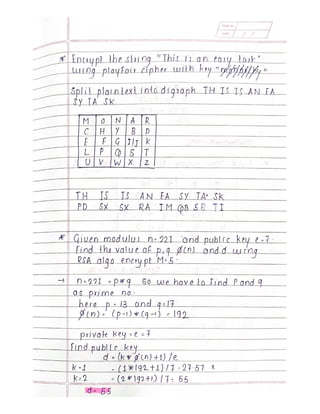 * Encrypt the string "This is an easy task"
using playfair cipher with key
Split plaintext into digraph TH IS IS AN EA
SY TA SK
M O N A R
C H Y B D
E F G I/J K
L P Q S T
U V W X Z
TH IS IS AN EA SY TA SK
PD SX SX RA IM QB SR TI
* Given modulus n=221 and public key e=7.
Find the value of p,q ø(n) and d using
RSA algo encrypt M=5.
→ n=221 = p*q So we have to find P and q
as prime no.
here p=13 and q=17
ø(n) = (p-1)*(q-1) = 192
private key = e = 7
find public key
d = (k*ø(n)+1)/e
k=1 = (1*192+1)/7 = 27.57 x
k=2 = (2*192+1)/7 = 55
d=55